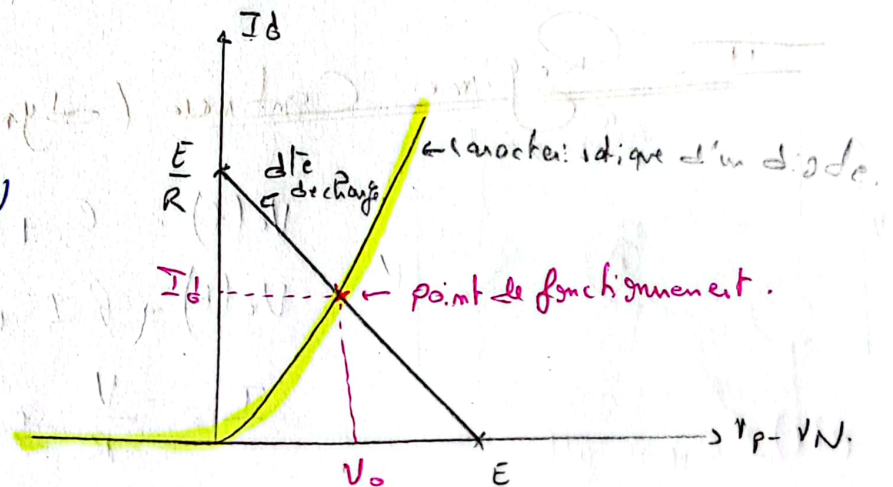 Id
E
R
dte
de charge
← caractéristique d'un diode.
Id
← point de fonctionnement.
→ VP - VN.
V0
E